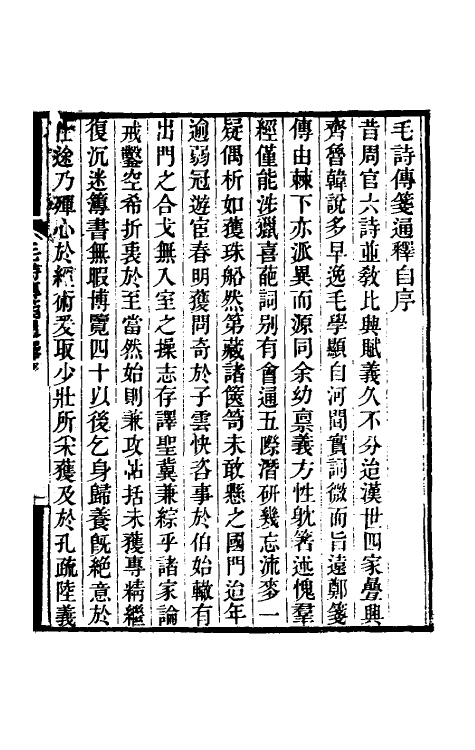 毛詩傳箋通釋自序
昔周官六詩並敎比興賦義久不分迨漢世四家疊興
齊魯韓說多早逸毛學顯自河間實詞微而旨遠鄭箋
傳由棘下亦派異而源同余幼稟義方性躭箸述愧羣
經僅能涉獵喜葩詞别有會通五際潛硏幾忘流麥一
疑偶析如獲珠船然第藏諸篋笥未敢懸之國門迨年
逾弱冠遊宦春明獲問奇於子雲快咨事於伯始轍有
出門之合戈無入室之操志存譯聖冀兼綜乎諸家論
戒鑿空希折衷於至當然始則兼攻帖括未獲專精繼
復沉迷簿書無暇博覽四十以後乞身歸養旣絶意於
仕途乃殫心於經術爰取少壯所采獲及於孔疏陸義
毛詩傳箋通釋
一